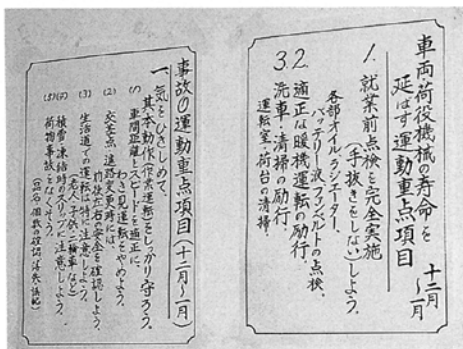 車両・荷役機械の寿命を
延ばす運動重点項目
十二月～一月
1. 就業前点検を完全実施
(手抜きをしない)しよう。
各部オイル、ラジエーター、
バッテリー液、ファンベルトの点検、
2. 適正な暖機運転の励行。
3. 洗車・清掃の励行。
運転室・荷台の清掃。
事故0運動重点項目(十二月～一月)
一、気をひきしめて、
基本動作(作業運転)をしっかり守ろう。
(1) 車間距離とスピードを適正に、
わき見運転をやめよう。
(2) 交差点、進路変更時には、
前後左右の安全を確認しよう。
(3) 生活道での運転は特に注意しよう。
(老人、子供、二輪車など)
積雪・凍結時のスリップに注意しよう。
(5) 荷物事故をなくそう。
(品名、個数の確認